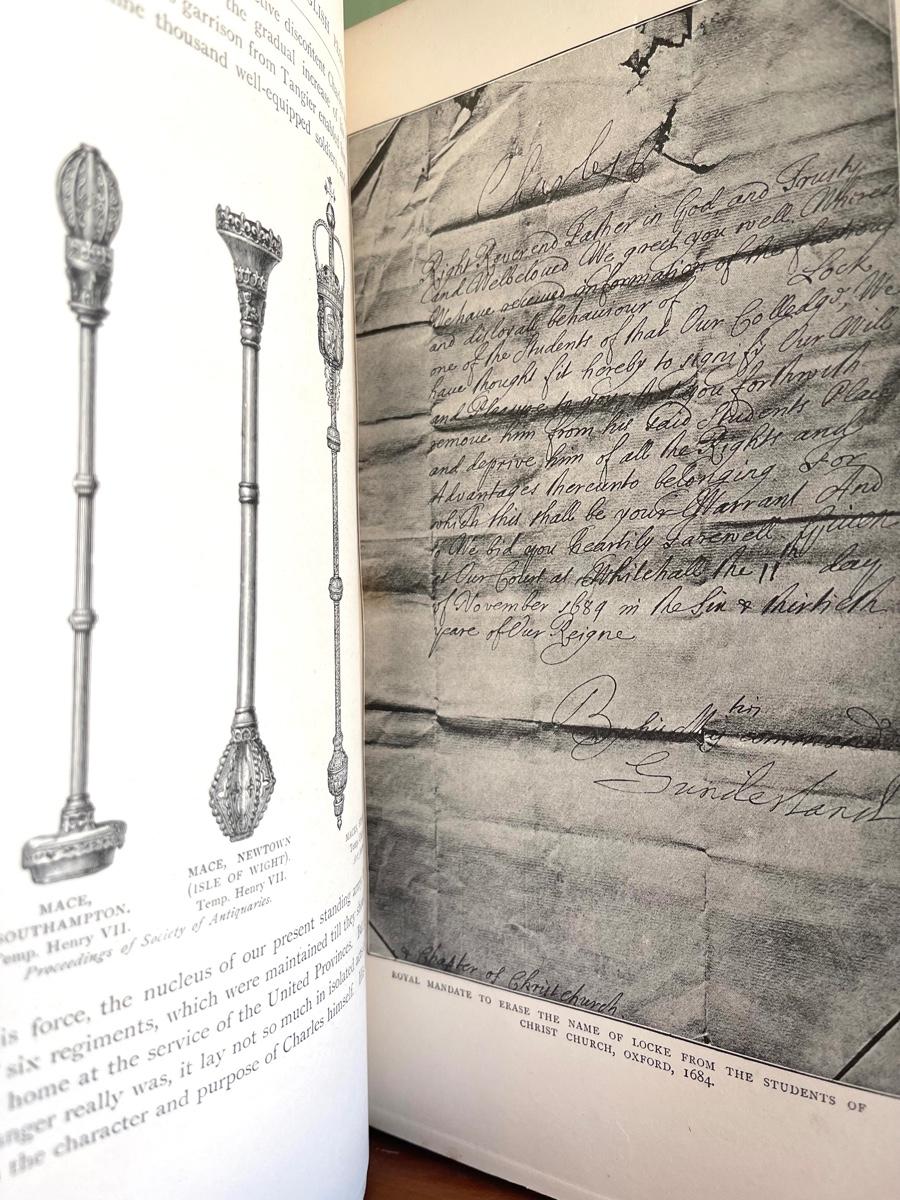 GLISH
discontent
the gradual increase of
garrison from Tangier enabled
thousand well-equipped soldiers
MACE,
SOUTHAMPTON.
Temp. Henry VII.
MACE, NEWTOWN
(ISLE OF WIGHT).
Temp. Henry VII.
Proceedings of Society of Antiquaries.
is force, the nucleus of our present standing army
six regiments, which were maintained till they
home at the service of the United Provinces.
really was, it lay not so much in isolated
the character and purpose of Charles himself.
Charles R
Right Reverend Father in God and Trusty
and Welbeloved We greet you well. Whereas
We have received information of the factious
and disloyall behaviour of Lock
one of the Students of that Our Colledge, We
have thought fit hereby to signify Our Will
and Pleasure to you that you forthwith
remove him from his said Students Place
and deprive him of all the Rights and
Advantages thereunto belonging For
which this shall be your Warrant And
so We bid you heartily Farewell. Given
at Our Court at Whitehall the 11th day
of November 1684 in the Six & thirtieth
yeare of Our Reigne
By his Maties command
Sunderland
& Chapter of Christchurch
ROYAL MANDATE TO ERASE THE NAME OF LOCKE FROM THE STUDENTS OF
CHRIST CHURCH, OXFORD, 1684.